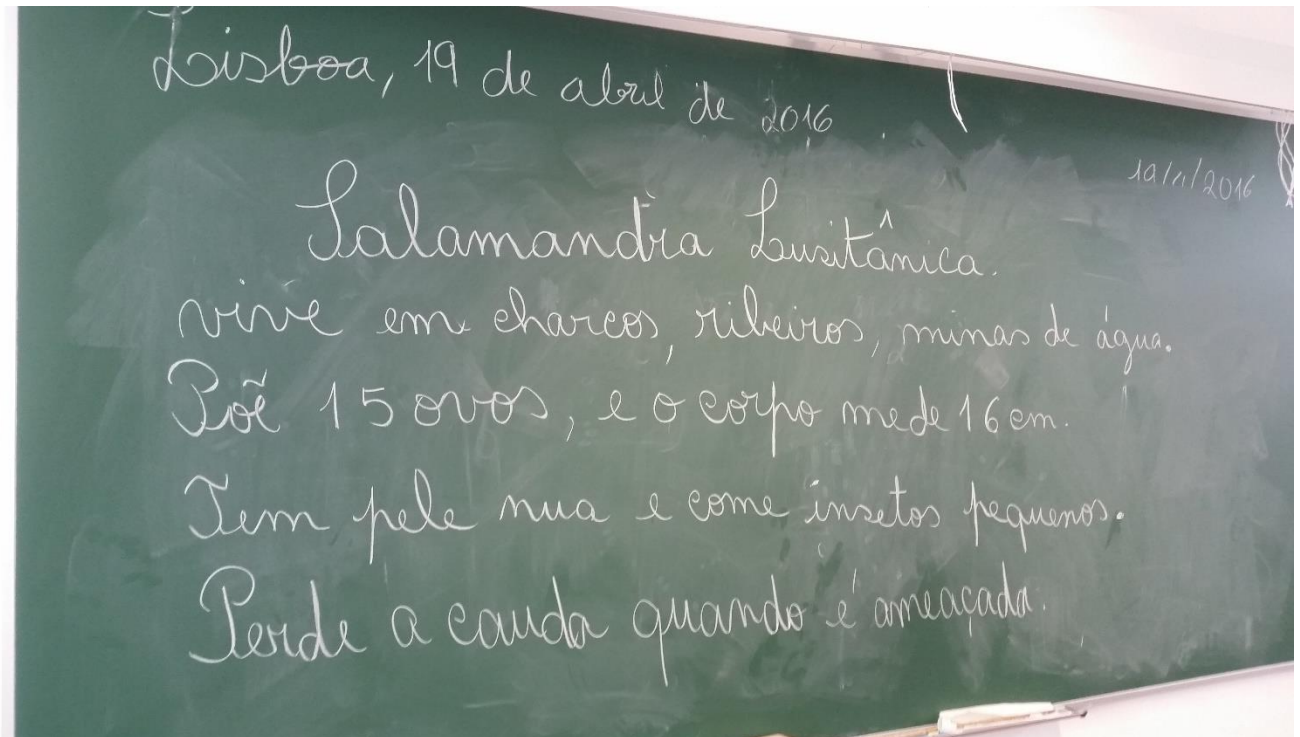 Lisboa, 19 de abril de 2016
Salamandra Lusitânica.
vive em charcos, ribeiros, minas de água.
Põe 15 ovos, e o corpo mede 16 cm.
Tem pele nua e come insetos pequenos.
Perde a cauda quando é ameaçada.